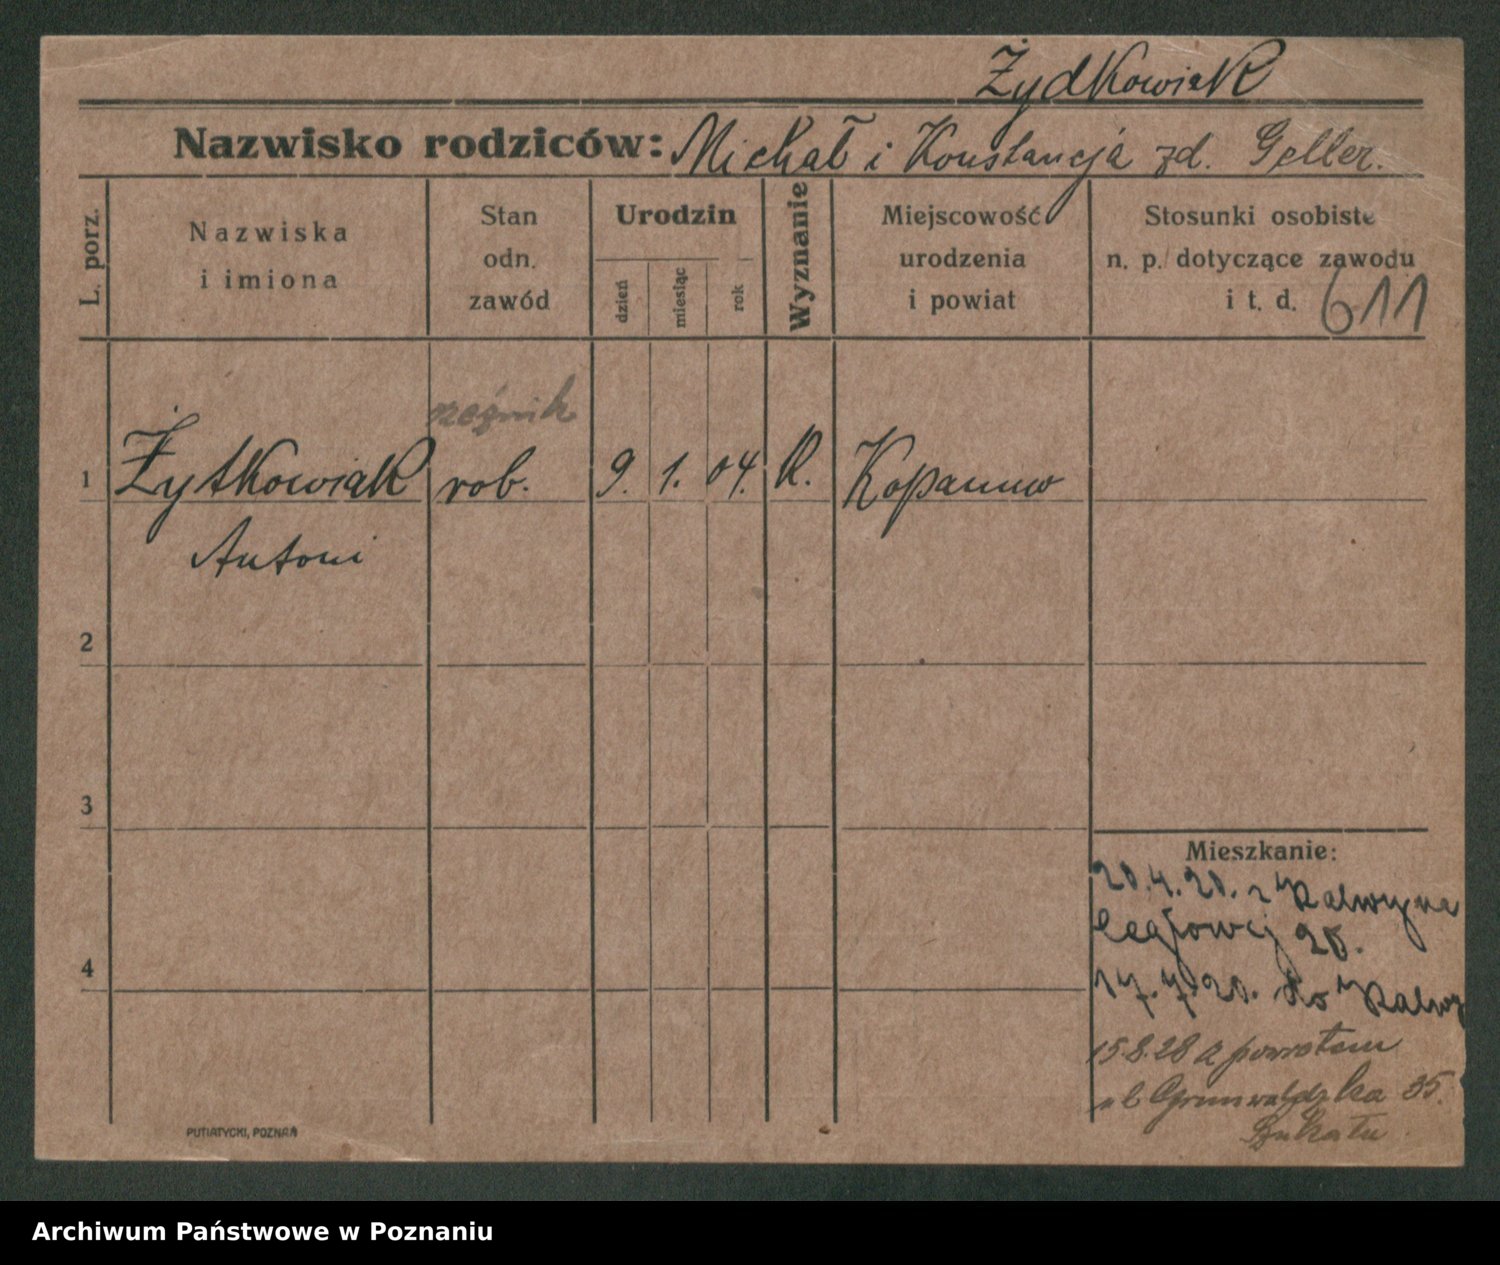 Żydkowiak
Nazwisko rodziców: Michał i Konstancja zd. Geller.
L. porz.
Nazwiska
i imiona
Stan
odn.
zawód
Urodzin
dzień
miesiąc
rok
Wyznanie
Miejscowość
urodzenia
i powiat
Stosunki osobiste
n. p. dotyczące zawodu
i t. d. 611
rzeźnik
1 Żytkowiak rob. 9. 1. 04. K.
Antoni
2
3
4
Mieszkanie:
20.4.20. z
Ceglowej 20.
17.7.20. do
15.8.28 z powrotem
ul Grunwaldzka 35.
PUTIATYCKI, POZNAŃ
Archiwum Państwowe w Poznaniu